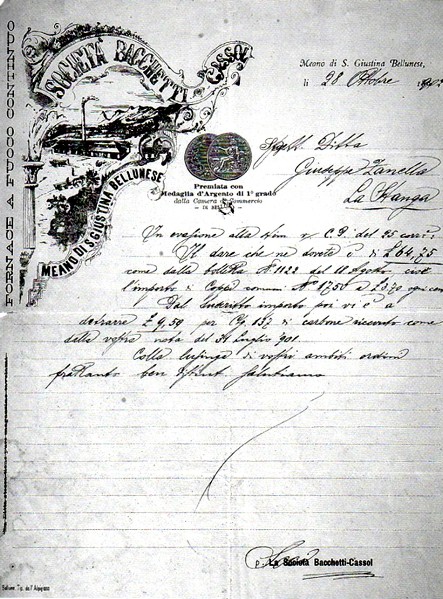 SOCIETÀ BACCHETTI CASSOL
MEANO DI S. GIUSTINA BELLUNESE
FORNACE A FUOCO CONTINUO
Premiata con
Medaglia d'Argento di 1° grado
dalla Camera di Commercio
Meano di S. Giustina Bellunese,
li 28 Ottobre
Spett. Ditta
Giuseppe Zanella
La Stanga
In evasione alla C. P. del 25 corr.
Il dare che ne dovete è di £ 64,75
come dalla bolletta N° 1122 del 11 Agosto, cioè
l'importo di Coppi comuni N° 1750 a £ 3,70 ogni cento
Dal suscritto importo poi vi è a
dedurre £ 9,59 per Cg. 137 di carbone ricevuto come
dalla vostra nota del 31 luglio 901.
Colla lusinga di vostri ambiti ordini
frattanto ben distint. salutiamo
p. La Società Bacchetti-Cassol
Belluno, Tip. dell'Alpigiano